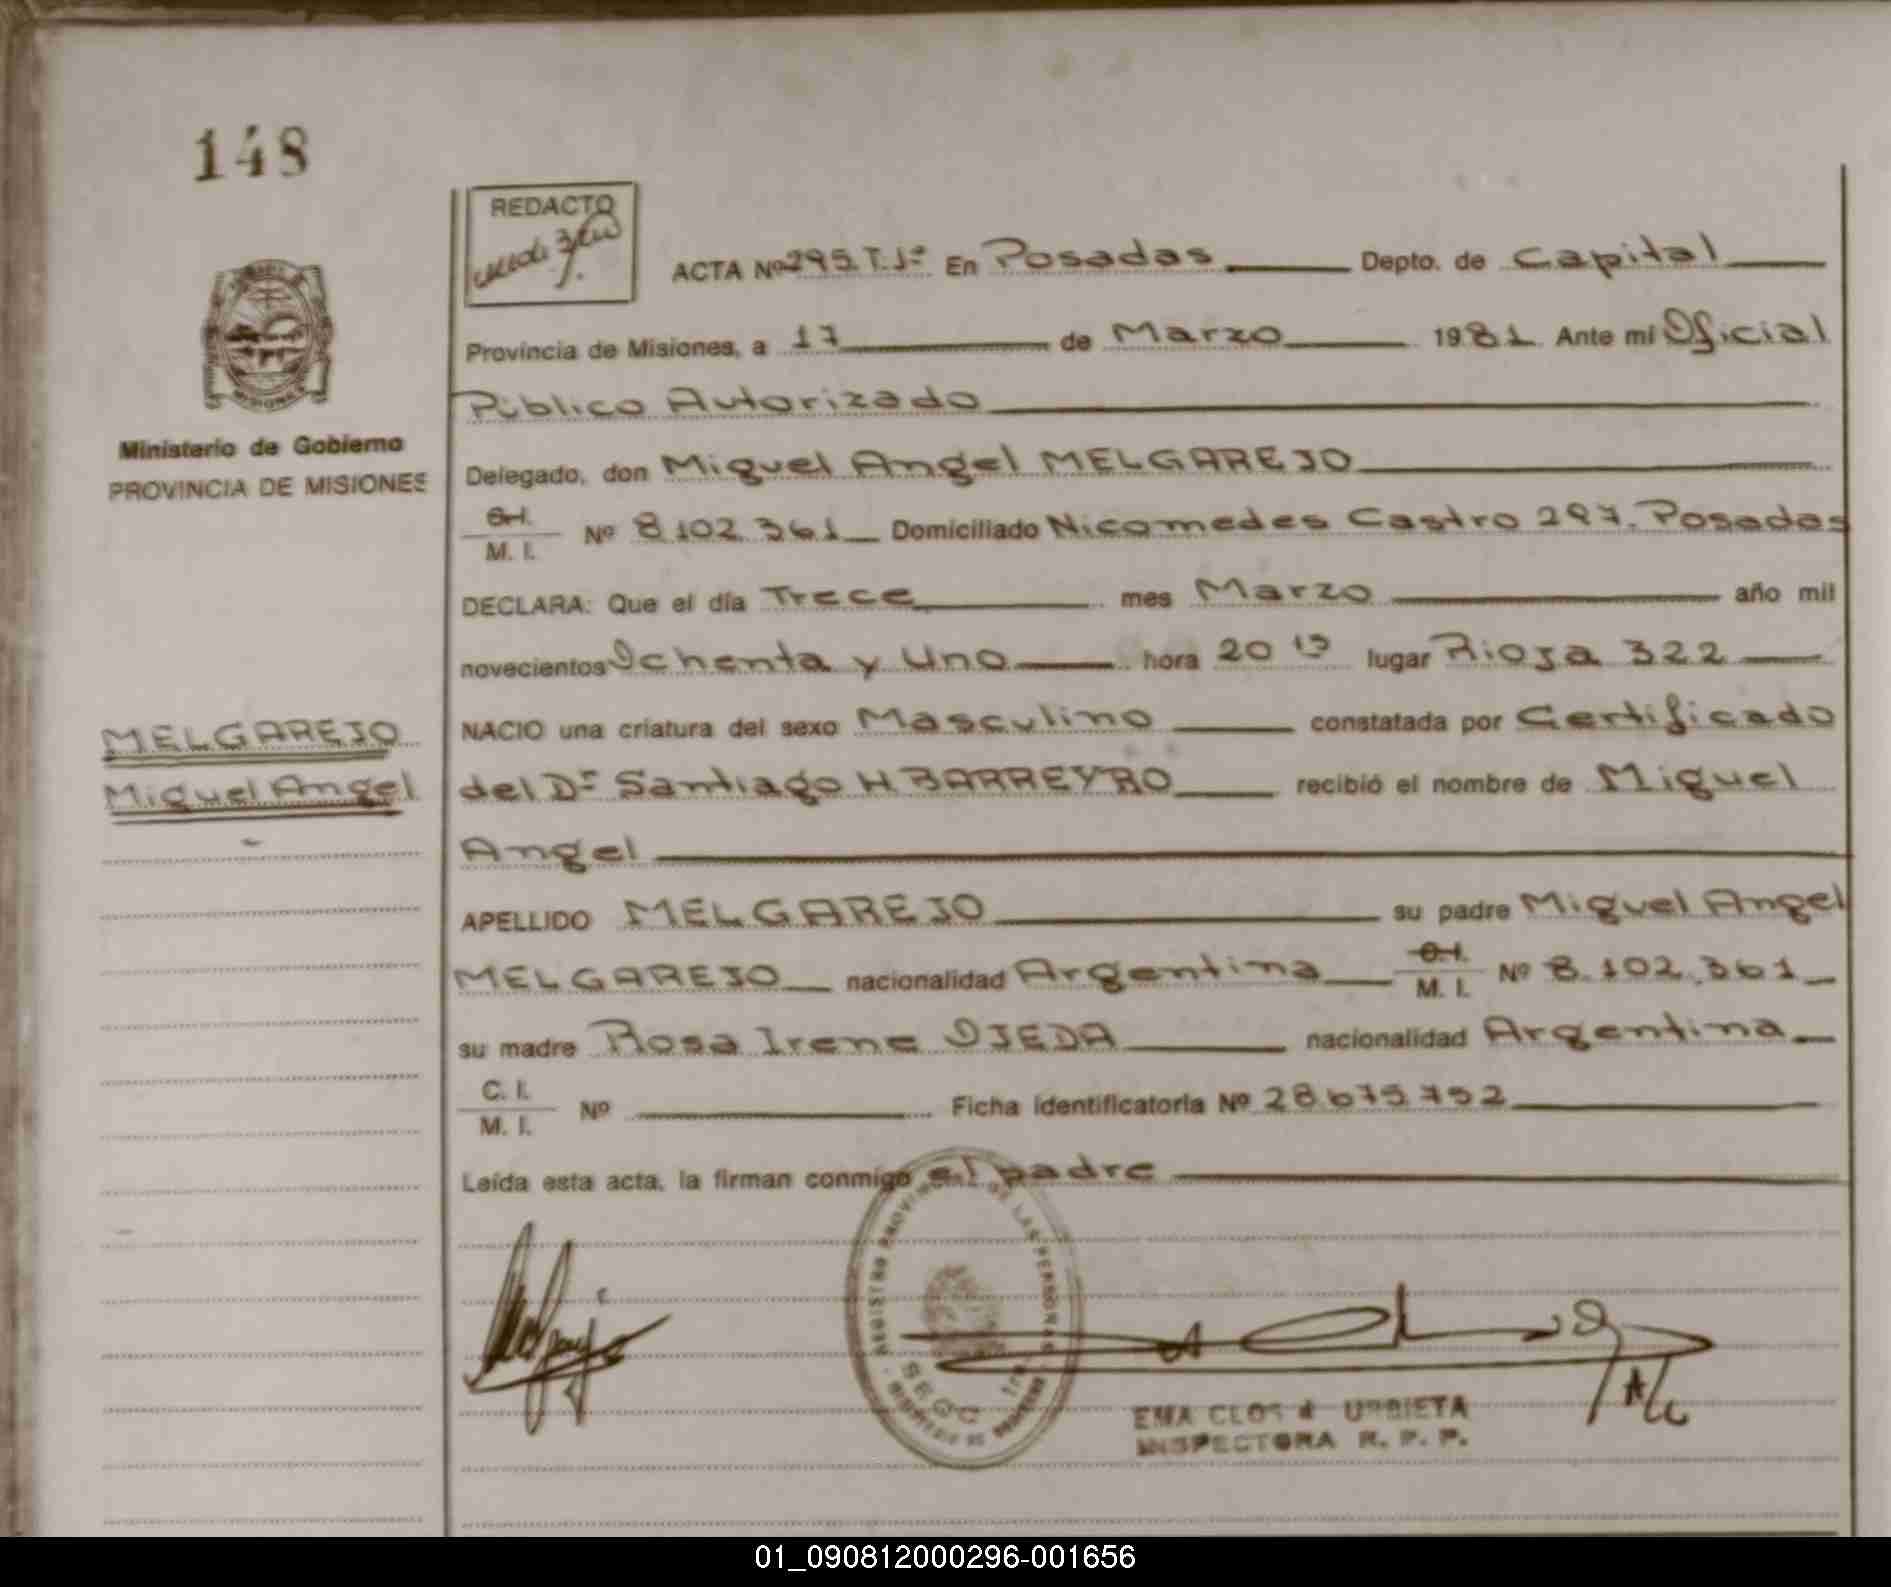 148
REDACTO
ACTA Nº 295 T.1º En Posadas Depto. de Capital
Provincia de Misiones, a 17 de Marzo 1981 Ante mi Oficial
Ministerio de Gobierno
PROVINCIA DE MISIONES
Público Autorizado
Delegado, don Miguel Angel MELGAREJO
C.I. M. I. Nº 8.102.361 Domiciliado Nicomedes Castro 297. Posadas
DECLARA: Que el día Trece mes Marzo año mil
novecientos Ochenta y Uno hora 20 15 lugar Rioja 322
MELGAREJO
Miguel Angel
NACIO una criatura del sexo Masculino constatada por Certificado
del Dr Santiago H BARREYRO recibió el nombre de Miguel
Angel
APELLIDO MELGAREJO su padre Miguel Angel
MELGAREJO nacionalidad Argentina C.I. M. I. Nº 8.102.361
su madre Rosa Irene OJEDA nacionalidad Argentina
C. I. M. I. Nº Ficha identificatoria Nº 28.675.752
Leída esta acta, la firman conmigo el padre
REGISTRO PROVINCIAL DE LAS PERSONAS
EMA CLOS URBIETA
INSPECTORA R. P. P.
01_090812000296-001656